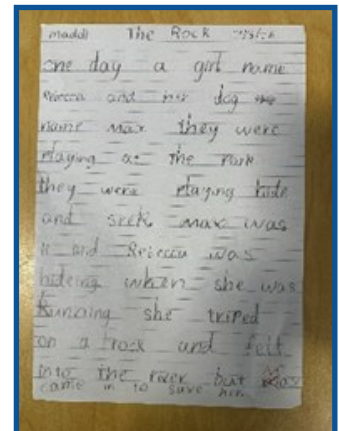 maddi The Rock
one day a girl name
Rebecca and her dog
name max they were
Playing at the Park
they were playing hide
and seek max was
it and Rebecca was
hideing when she was
Running she triped
on a rock and fell
into the river but Max
came in to save her